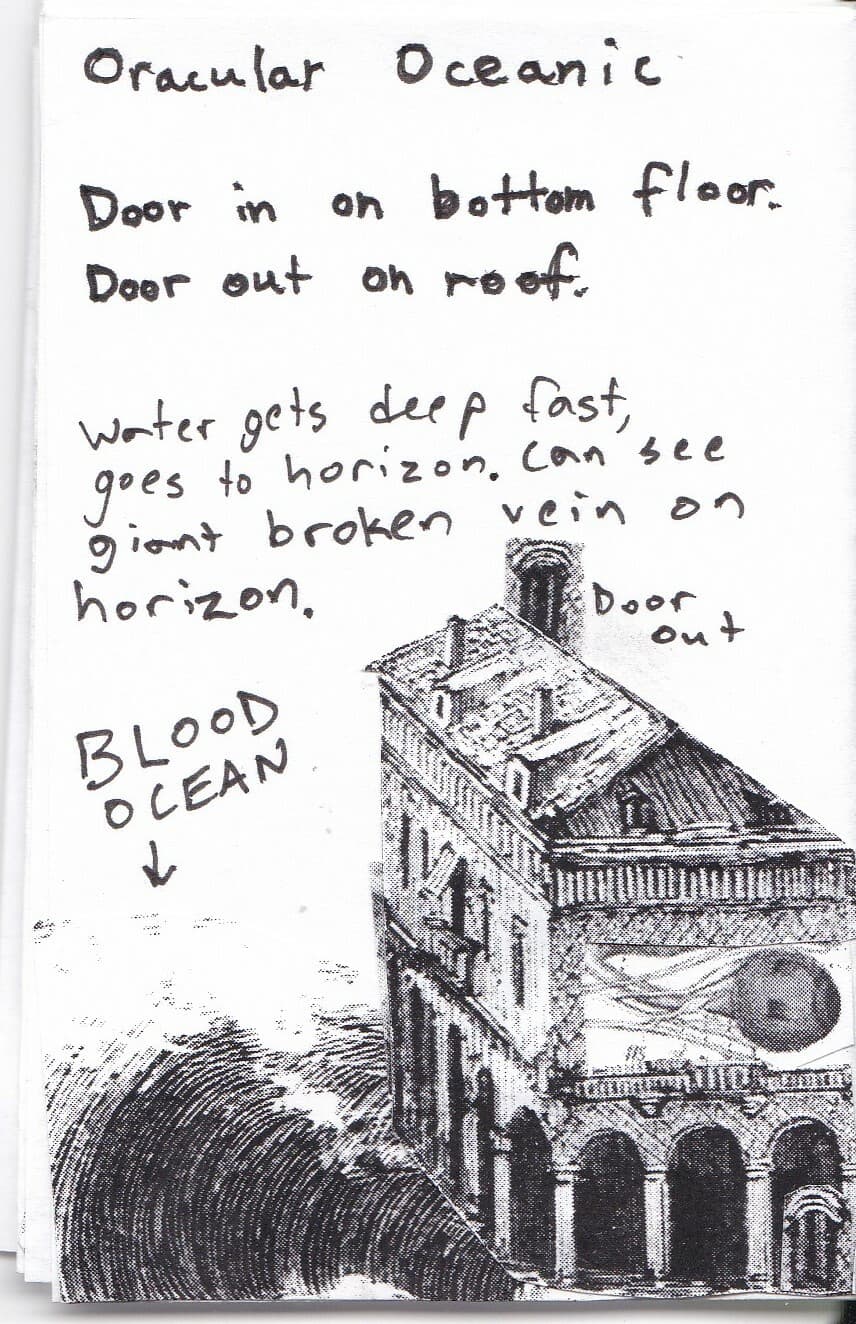 Oracular Oceanic
Door in on bottom floor.
Door out on roof.
Water gets deep fast,
goes to horizon. Can see
giant broken vein on
horizon.
Door
out
BLOOD
OCEAN